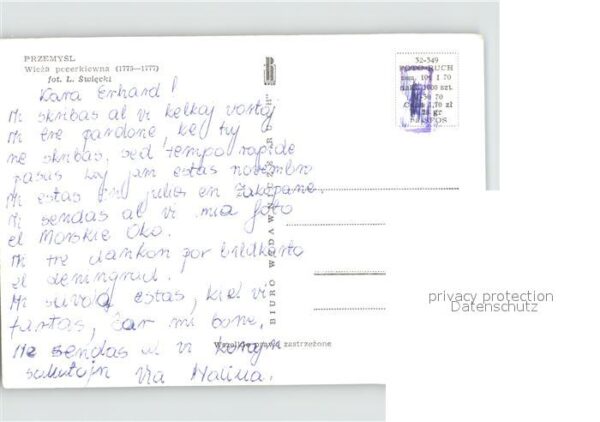 PRZEMYŚL
Wieża pocerkiewna (1775—1777)
fot. L. Święcki
Kara Erhard!
Mi skribas al vi kelkaj vortoj
Mi tre pardone, ke mi
ne skribas, sed tempo rapide
pasus kaj jam estas novembro
Mi estas en julio en Zakopane.
Mi sendas al vi mia foto
el Morskie Oko.
Mi tre dankon por bildkarto
el Leningrad.
Mi estas, kiel vi
fartas, ĉar mi bone.
Mi sendas al vi korajn
salutojn Via Halina.
BIURO WYDAWNICZE „RUCH"
52-549
FOTO-RUCH
zł
gr
Wszelkie prawa zastrzeżone
privacy protection
Datenschutz